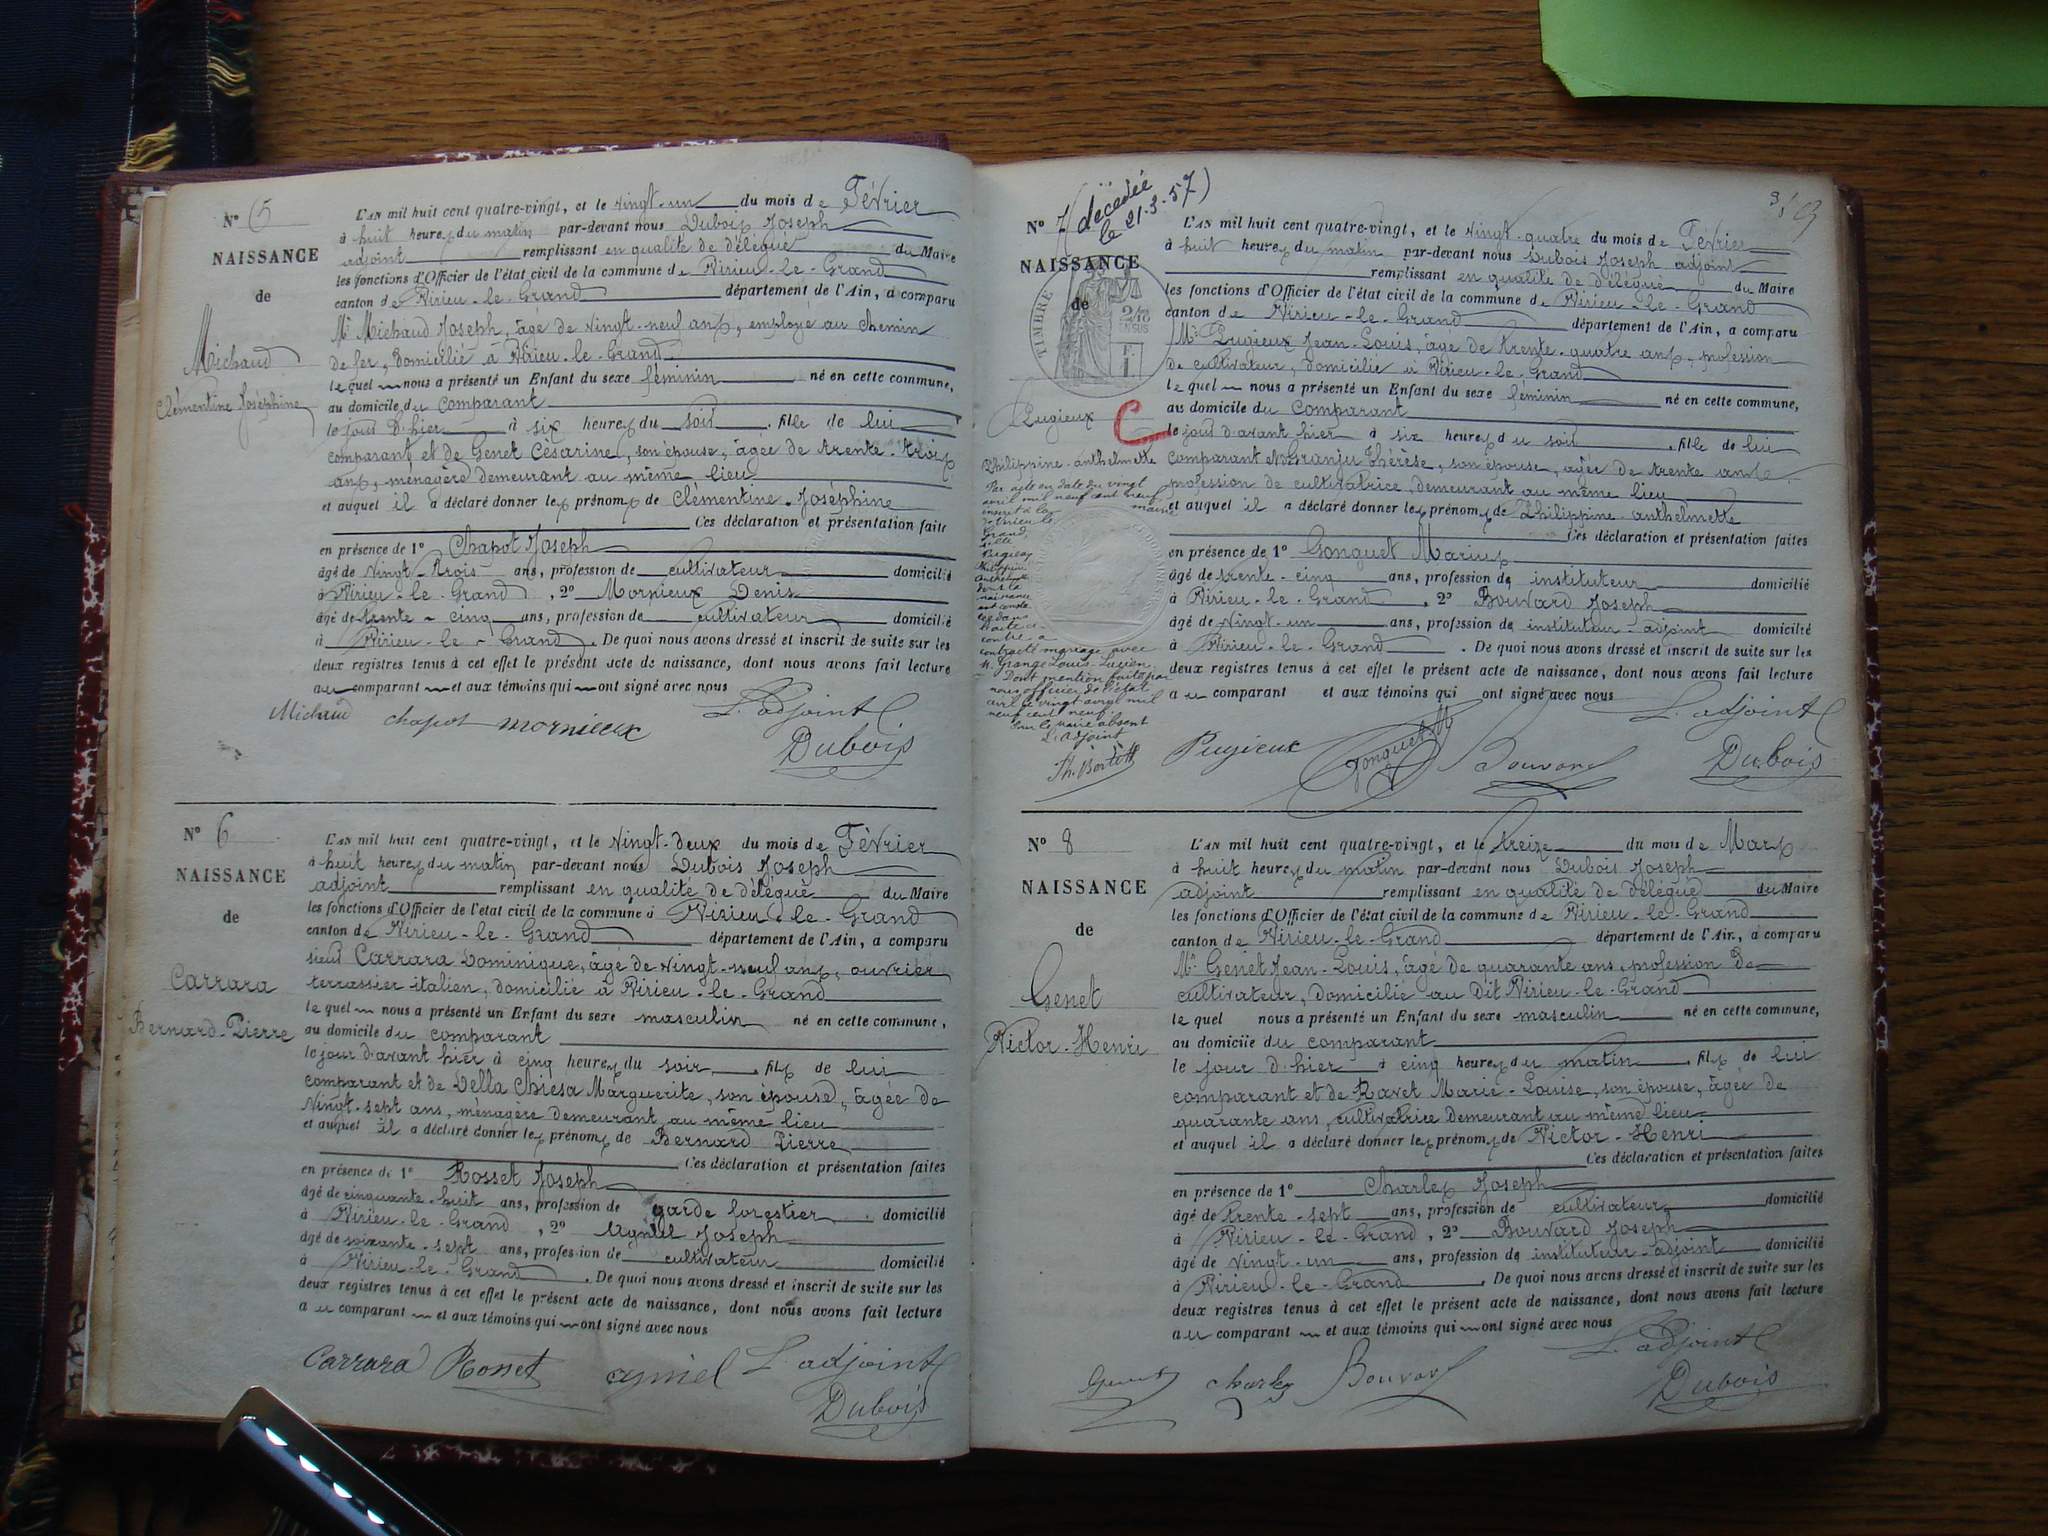 N° 5
NAISSANCE
de
Michaud
Clémentine Joséphine
L'AN mil huit cent quatre-vingt, et le vingt-un du mois de Février
à huit heures du matin par-devant nous Dubois Joseph
adjoint remplissant en qualité de délégué du Maire
les fonctions d'Officier de l'état civil de la commune de Virieu-le-Grand
canton de Virieu-le-Grand département de l'Ain, a comparu
Mr Michaud Joseph, âgé de vingt-neuf ans, employé au chemin
de fer, domicilié à Virieu-le-Grand
lequel nous a présenté un Enfant du sexe féminin né en cette commune,
au domicile du comparant
le jour d'hier à six heures du soir, fille de lui
comparant et de Genet Césarine, son épouse, âgée de trente-trois
ans, ménagère demeurant au même lieu
et auquel il a déclaré donner les prénoms de Clémentine-Joséphine
Ces déclaration et présentation faites
en présence de 1° Chapot Joseph
âgé de vingt-trois ans, profession de cultivateur domicilié
à Virieu-le-Grand, 2° Mornieux Denis
âgé de trente-cinq ans, profession de cultivateur domicilié
à Virieu-le-Grand. De quoi nous avons dressé et inscrit de suite sur les
deux registres tenus à cet effet le présent acte de naissance, dont nous avons fait lecture
au comparant et aux témoins qui ont signé avec nous
Michaud chapot mornieux L'adjoint
Dubois
N° 6
NAISSANCE
de
Carrara
Bernard-Pierre
L'AN mil huit cent quatre-vingt, et le vingt-deux du mois de Février
à huit heures du matin par-devant nous Dubois Joseph
adjoint remplissant en qualité de délégué du Maire
les fonctions d'Officier de l'état civil de la commune d Virieu-le-Grand
canton de Virieu-le-Grand département de l'Ain, a comparu
sieur Carrara Dominique, âgé de vingt-neuf ans, ouvrier
terrassier italien, domicilié à Virieu-le-Grand
lequel nous a présenté un Enfant du sexe masculin né en cette commune,
au domicile du comparant
le jour d'avant hier à cinq heures du soir, fils de lui
comparant et de Della Chiesa Marguerite, son épouse, âgée de
vingt-sept ans, ménagère demeurant au même lieu
et auquel il a déclaré donner les prénoms de Bernard Pierre
Ces déclaration et présentation faites
en présence de 1° Rosset Joseph
âgé de cinquante-huit ans, profession de garde forestier domicilié
à Virieu-le-Grand, 2° Joseph
âgé de soixante-sept ans, profession de cultivateur domicilié
à Virieu-le-Grand. De quoi nous avons dressé et inscrit de suite sur les
deux registres tenus à cet effet le présent acte de naissance, dont nous avons fait lecture
au comparant et aux témoins qui ont signé avec nous
Carrara Rosset L'adjoint
Dubois
N° 7 (décédée
le 21.3.57)
NAISSANCE
de
TIMBRE
Pugieux C
Philippine-anthelmette
Par acte en date du vingt
avril mil neuf cent neuf
inscrit à la mairie
de Virieu le
Grand,
contracté mariage avec
M. Grange Louis-Lucien
Dont mention faite par
nous officier de l'état
civil le vingt avril mil
neuf cent neuf.
Pour le maire absent
L'adjoint
L'AN mil huit cent quatre-vingt, et le vingt-quatre du mois de Février
à huit heures du matin par-devant nous Dubois Joseph adjoint
remplissant en qualité de délégué du Maire
les fonctions d'Officier de l'état civil de la commune de Virieu-le-Grand
canton de Virieu-le-Grand département de l'Ain, a comparu
Mr Pugieux Jean-Louis, âgé de trente-quatre ans, profession
de cultivateur, domicilié à Virieu-le-Grand
lequel nous a présenté un Enfant du sexe féminin né en cette commune,
au domicile du comparant
le jour d'avant hier à six heures du soir, fille de lui
comparant Granju Thérèse, son épouse, âgée de trente ans
profession de cultivatrice, demeurant au même lieu
et auquel il a déclaré donner les prénoms de Philippine-anthelmette
Ces déclaration et présentation faites
en présence de 1° Gonguet Marius
âgé de trente-cinq ans, profession de instituteur domicilié
à Virieu-le-Grand, 2° Bouvard Joseph
âgé de vingt-un ans, profession de instituteur-adjoint domicilié
à Virieu-le-Grand. De quoi nous avons dressé et inscrit de suite sur les
deux registres tenus à cet effet le présent acte de naissance, dont nous avons fait lecture
au comparant et aux témoins qui ont signé avec nous
Pugieux Gonguet Bouvard L'adjoint
Dubois
N° 8
NAISSANCE
de
Genet
Victor-Henri
L'AN mil huit cent quatre-vingt, et le treize du mois de Mars
à huit heures du matin par-devant nous Dubois Joseph
adjoint remplissant en qualité de délégué du Maire
les fonctions d'Officier de l'état civil de la commune de Virieu-le-Grand
canton de Virieu-le-Grand département de l'Ain, a comparu
Mr Genet Jean-Louis, âgé de quarante ans, profession de
cultivateur, domicilié au dit Virieu-le-Grand
lequel nous a présenté un Enfant du sexe masculin né en cette commune,
au domicile du comparant
le jour d'hier à cinq heures du matin, fils de lui
comparant et de Ravet Marie-Louise, son épouse, âgée de
quarante ans, cultivatrice demeurant au même lieu
et auquel il a déclaré donner les prénoms de Victor-Henri
Ces déclaration et présentation faites
en présence de 1° Charles Joseph
âgé de trente-sept ans, profession de cultivateur domicilié
à Virieu-le-Grand, 2° Bouvard Joseph
âgé de vingt-un ans, profession de instituteur-adjoint domicilié
à Virieu-le-Grand. De quoi nous avons dressé et inscrit de suite sur les
deux registres tenus à cet effet le présent acte de naissance, dont nous avons fait lecture
au comparant et aux témoins qui ont signé avec nous
Genet Charles Bouvard L'adjoint
Dubois